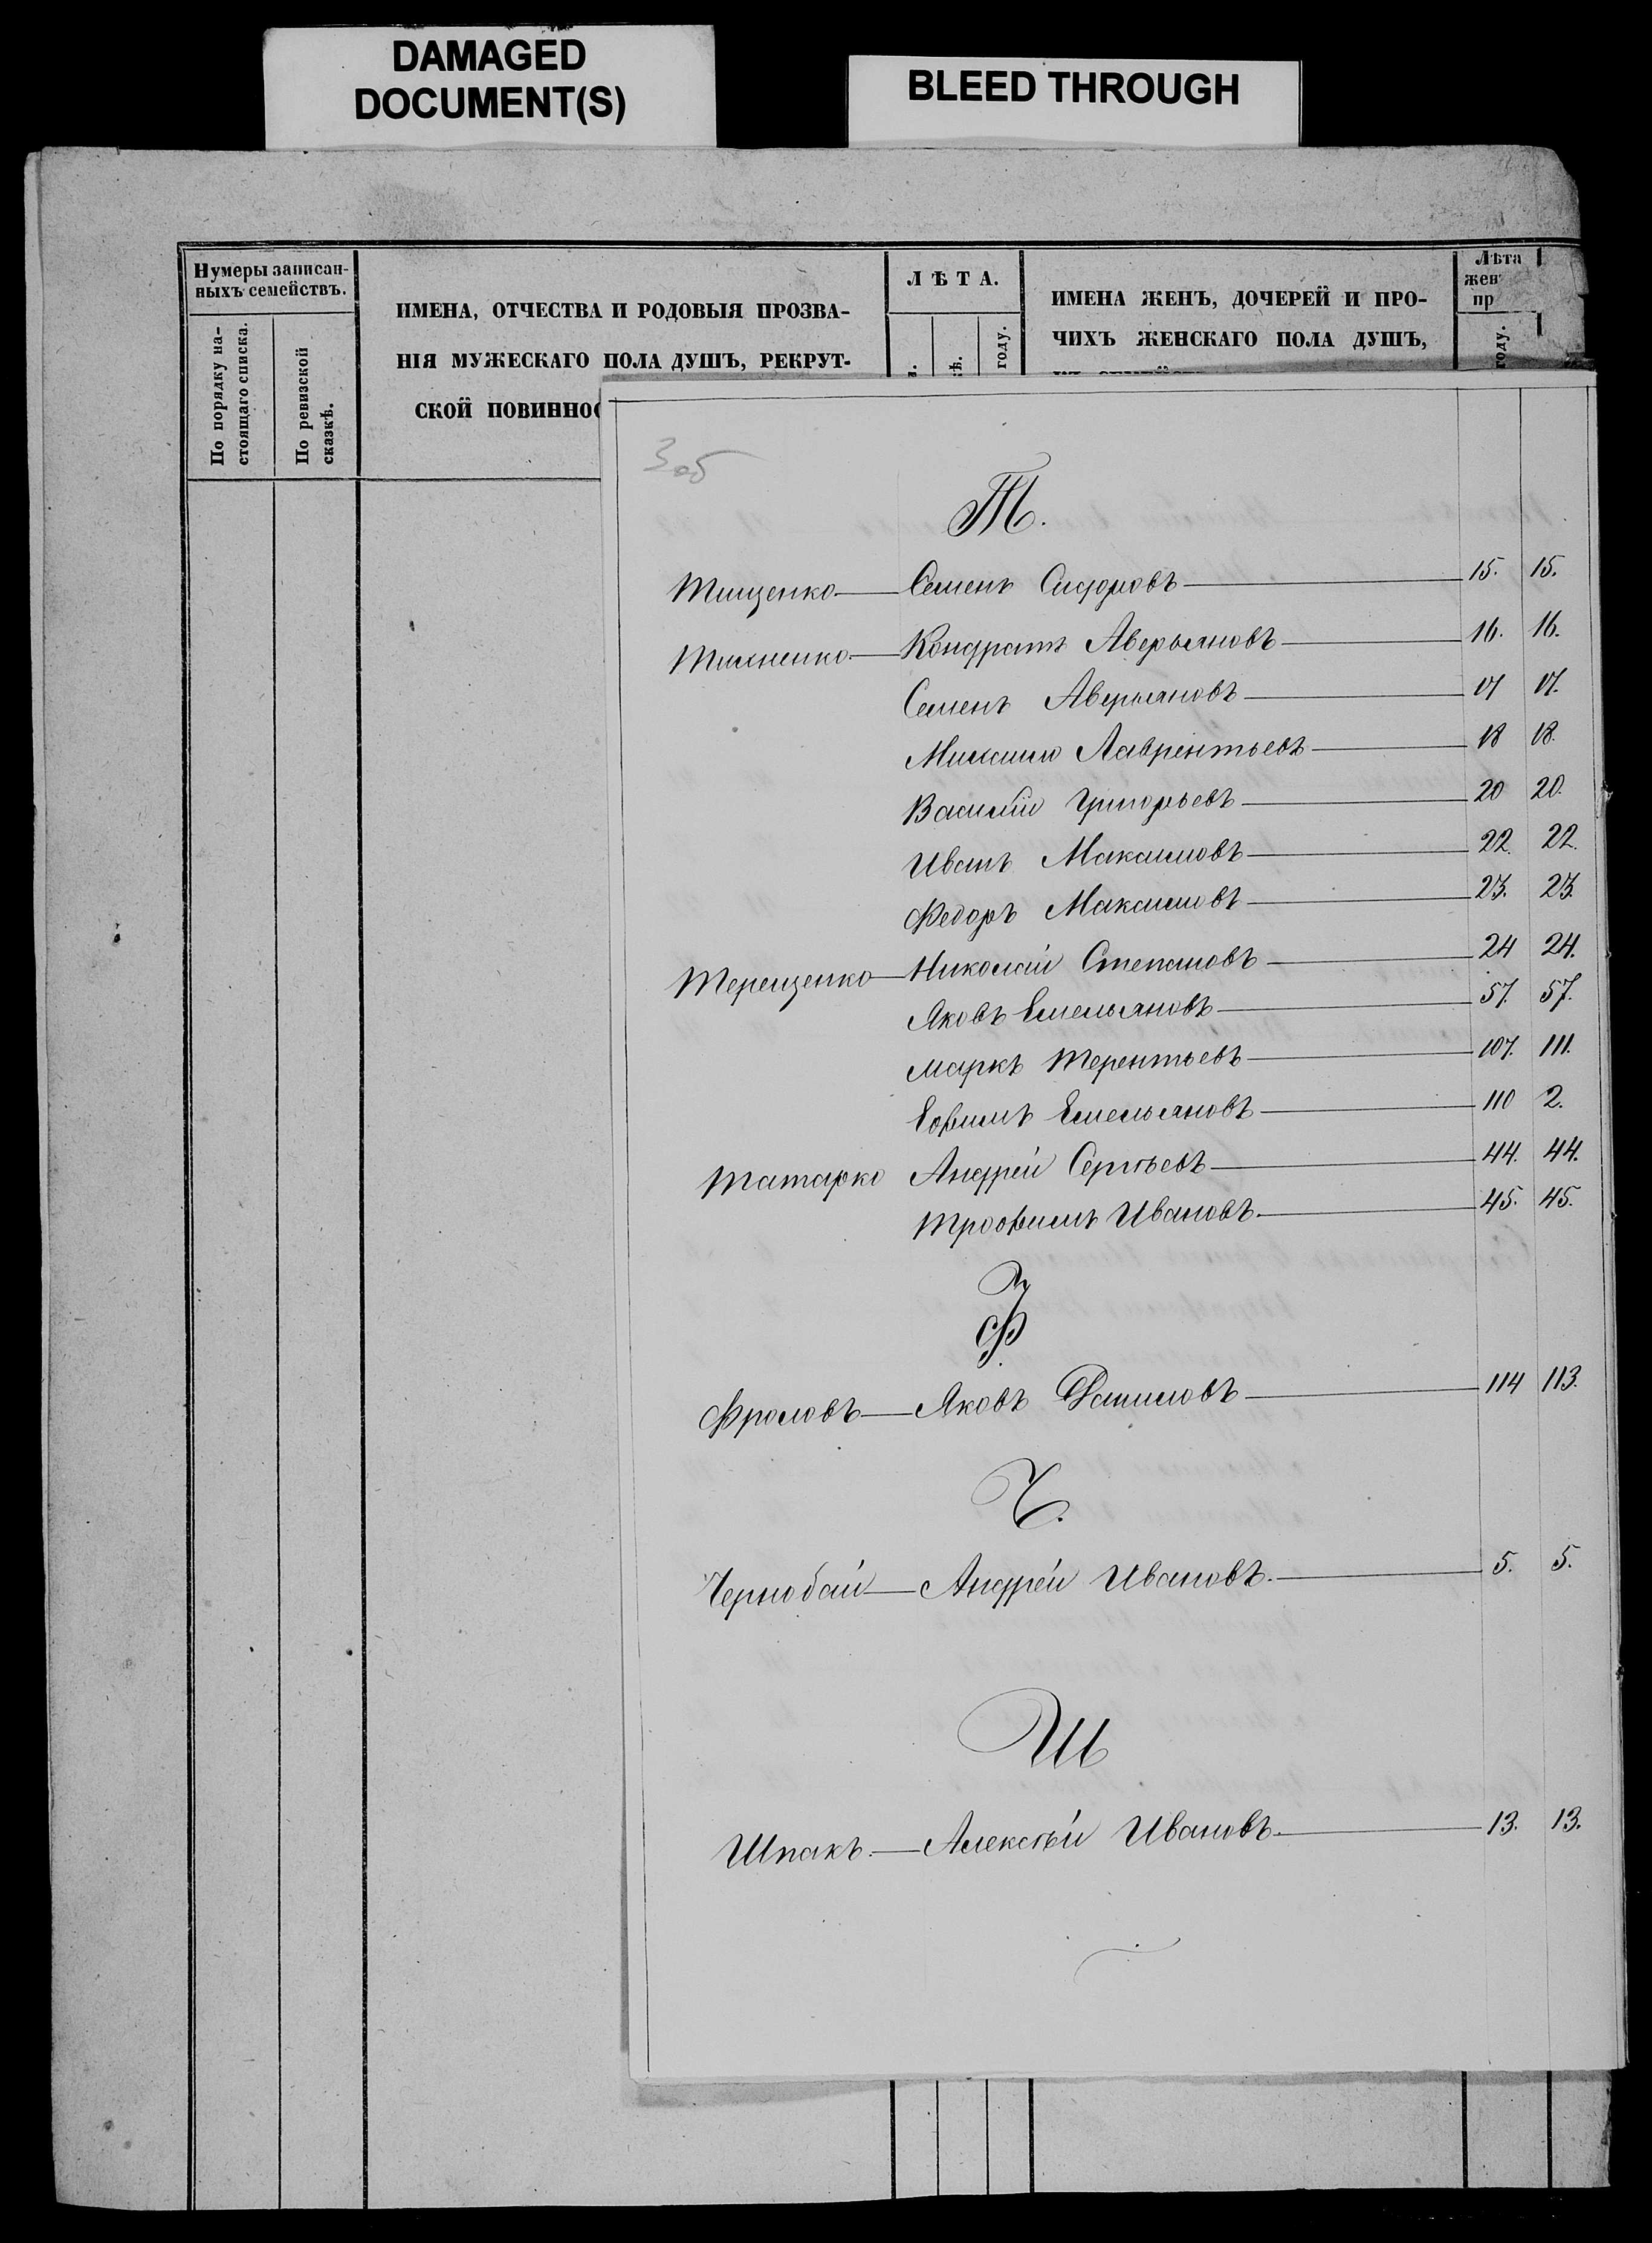 DAMAGED
DOCUMENT(S)
BLEED THROUGH
Нумеры записан-
ныхъ семействъ.
По порядку на-
стоящаго списка.
По ревизской
сказкѣ.
ИМЕНА, ОТЧЕСТВА И РОДОВЫЯ ПРОЗВА-
НІЯ МУЖЕСКАГО ПОЛА ДУШЪ, РЕКРУТ-
СКОЙ ПОВИННОС
ЛѢТА.
году.
ИМЕНА ЖЕНЪ, ДОЧЕРЕЙ И ПРО-
ЧИХЪ ЖЕНСКАГО ПОЛА ДУШЪ,
Лѣта
жен
пр
году.
3 об
Т.
Тищенко — Семенъ Сидоровъ — 15. 15.
Кондратъ Аверьяновъ — 16. 16.
Семенъ Аверьяновъ — 17 17.
Лаврентьевъ — 18 18.
Василій Григорьевъ — 20 20.
Иванъ Максимовъ — 22. 22.
Федоръ Максимовъ — 23. 23.
Терещенко — Николай Степановъ — 24 24.
Яковъ Емельяновъ — 57. 57.
Маркъ Терентьевъ — 107. 111.
Ефимъ Емельяновъ — 110 2.
Татарко Андрей Сергѣевъ — 44. 44.
Трофимъ Ивановъ. — 45. 45.
Ф
Фроловъ — Яковъ Даниловъ — 114 113.
Ч.
Чернобай — Андрей Ивановъ. — 5. 5.
Ш
Шпакъ. — Алексѣй Ивановъ. — 13. 13.